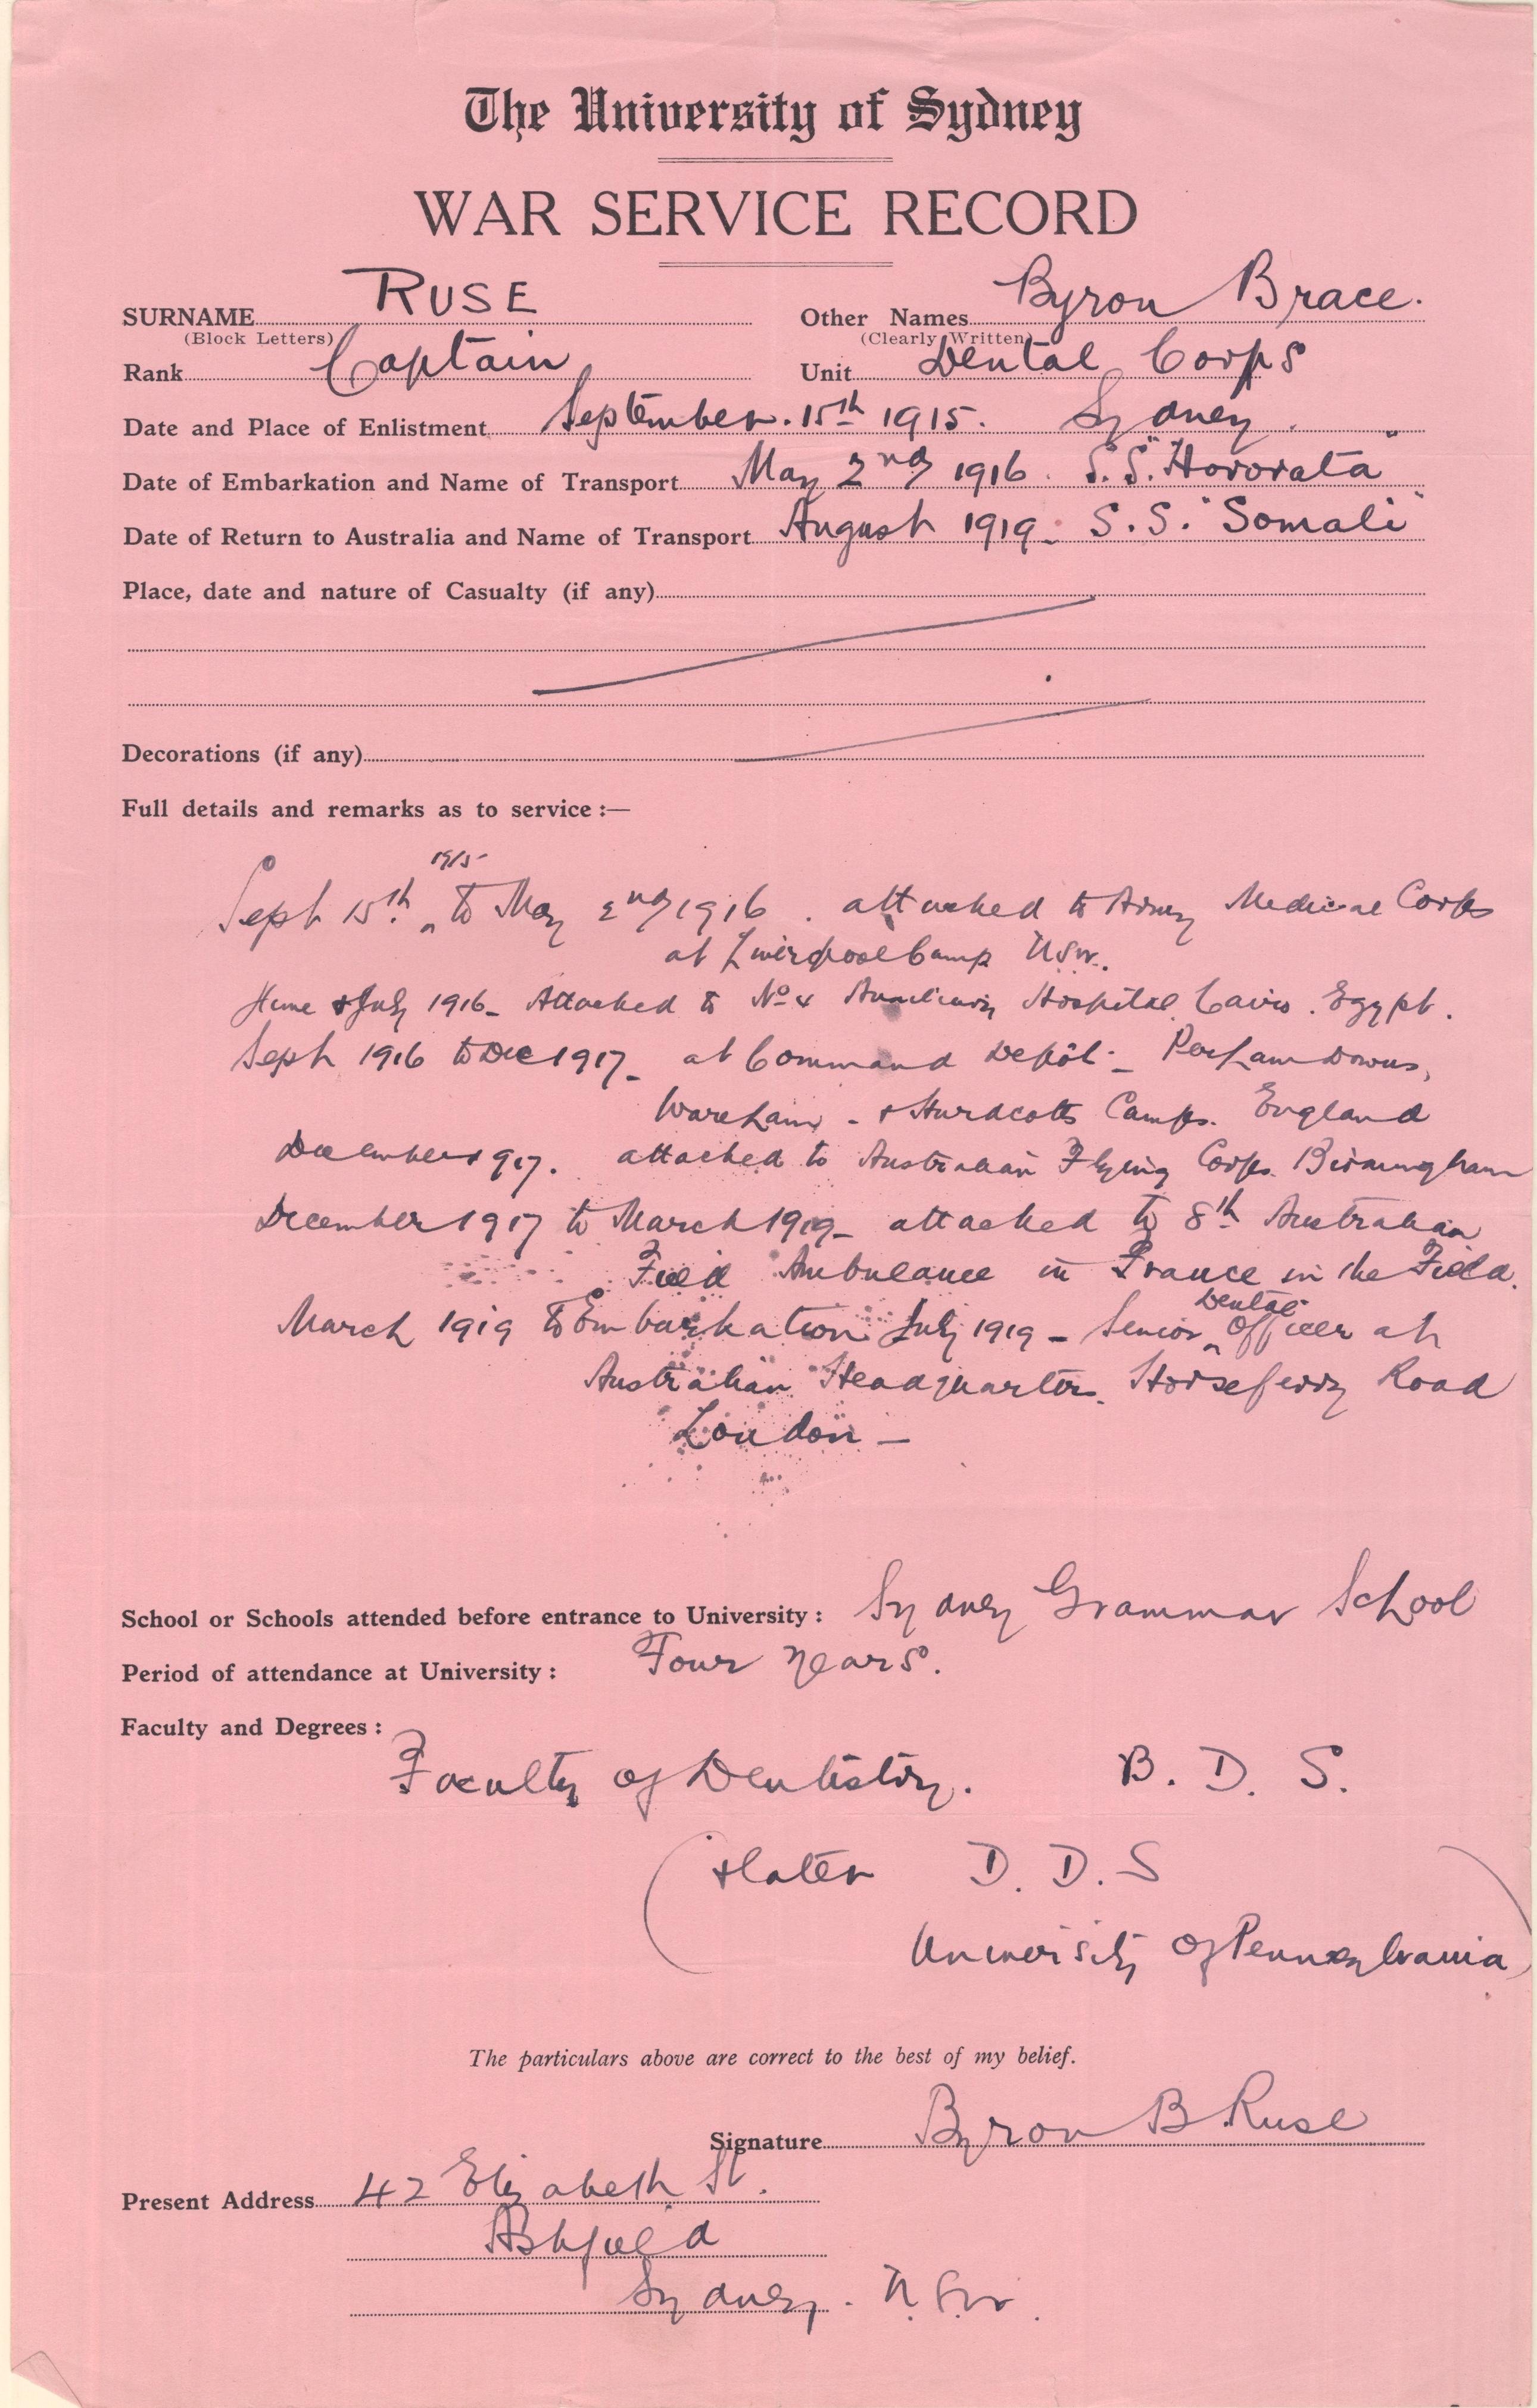 The University of Sydney
WAR SERVICE RECORD
SURNAME RUSE Other Names Byron Brace.
(Block Letters) (Clearly Written)
Rank Captain Unit Dental Corps
Date and Place of Enlistment September. 15th 1915. Sydney.
Date of Embarkation and Name of Transport May 2nd 1916. S.S. "Hororata"
Date of Return to Australia and Name of Transport August 1919 - S.S. "Somali"
Place, date and nature of Casualty (if any)
Decorations (if any)
Full details and remarks as to service :—
Sept 15th 1915 to May 2nd 1916. attached to Army Medical Corps
at Liverpool Camp NSW.
June & July 1916 - Attached to No 4 Auxiliary Hospital Cairo. Egypt.
Sept 1916 to Dec 1917 - at Command Depôt - Perham Downs,
Wareham - & Hurdcotts Camps. England
December 1917. attached to Australian Flying Corps. Birmingham
December 1917 to March 1919 - attached to 8th Australian
Field Ambulance in France in the Field.
March 1919 to Embarkation July 1919 - Senior Dental Officer at
Australian Headquarters. Horseferry Road
London -
School or Schools attended before entrance to University : Sydney Grammar School
Period of attendance at University : Four Years.
Faculty and Degrees :
Faculty of Dentistry. B. D. S.
(& later D. D. S
University of Pennsylvania)
The particulars above are correct to the best of my belief.
Signature Byron B Ruse
Present Address 42 Elizabeth St.
Ashfield
Sydney. N.S.W.